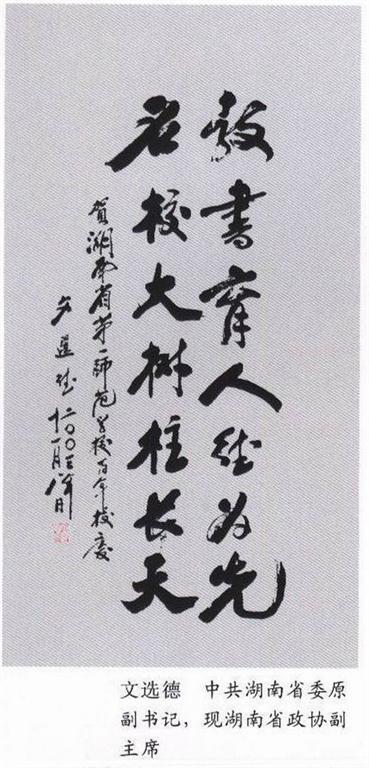 教書育人德为先
名校大树柱长天
贺湖南省第一師范学校百年校庆
文選德 二〇〇三年
十一月八日
文选德 中共湖南省委原
副书记，现湖南省政协副
主席